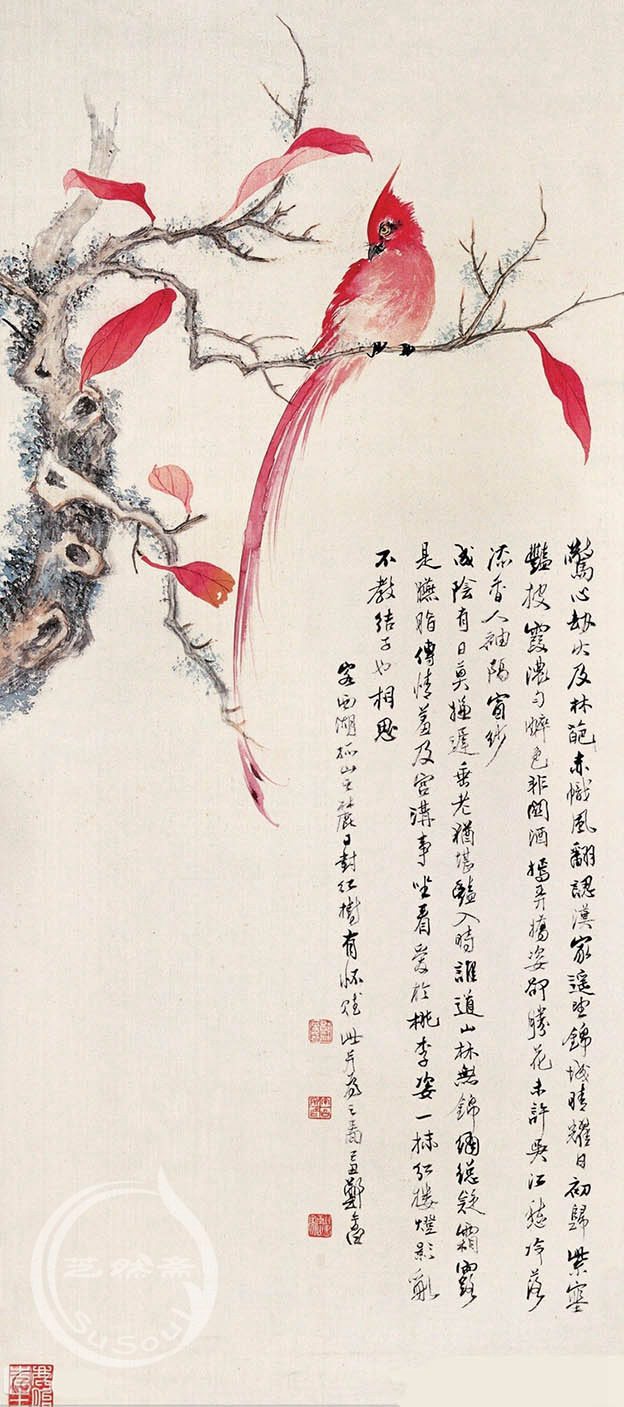 驚心劫火及林葩赤幟風翻認漢家遥望錦城晴耀日初歸紫塞
豔披霞濃勻醉色非關酒姿卻勝花未許吳江冷落
添香人袖隔窗紗
成陰有日莫嫌遲垂老猶堪豔入時誰道山林無錦繡總疑霜露
是臙脂傳情羞及宮溝事坐看於桃李姿一抹紅樓燈影亂
不教結子也相思
客西湖孤山之麓日對紅樹有懷賦此并為之圖鄭
SuSoul